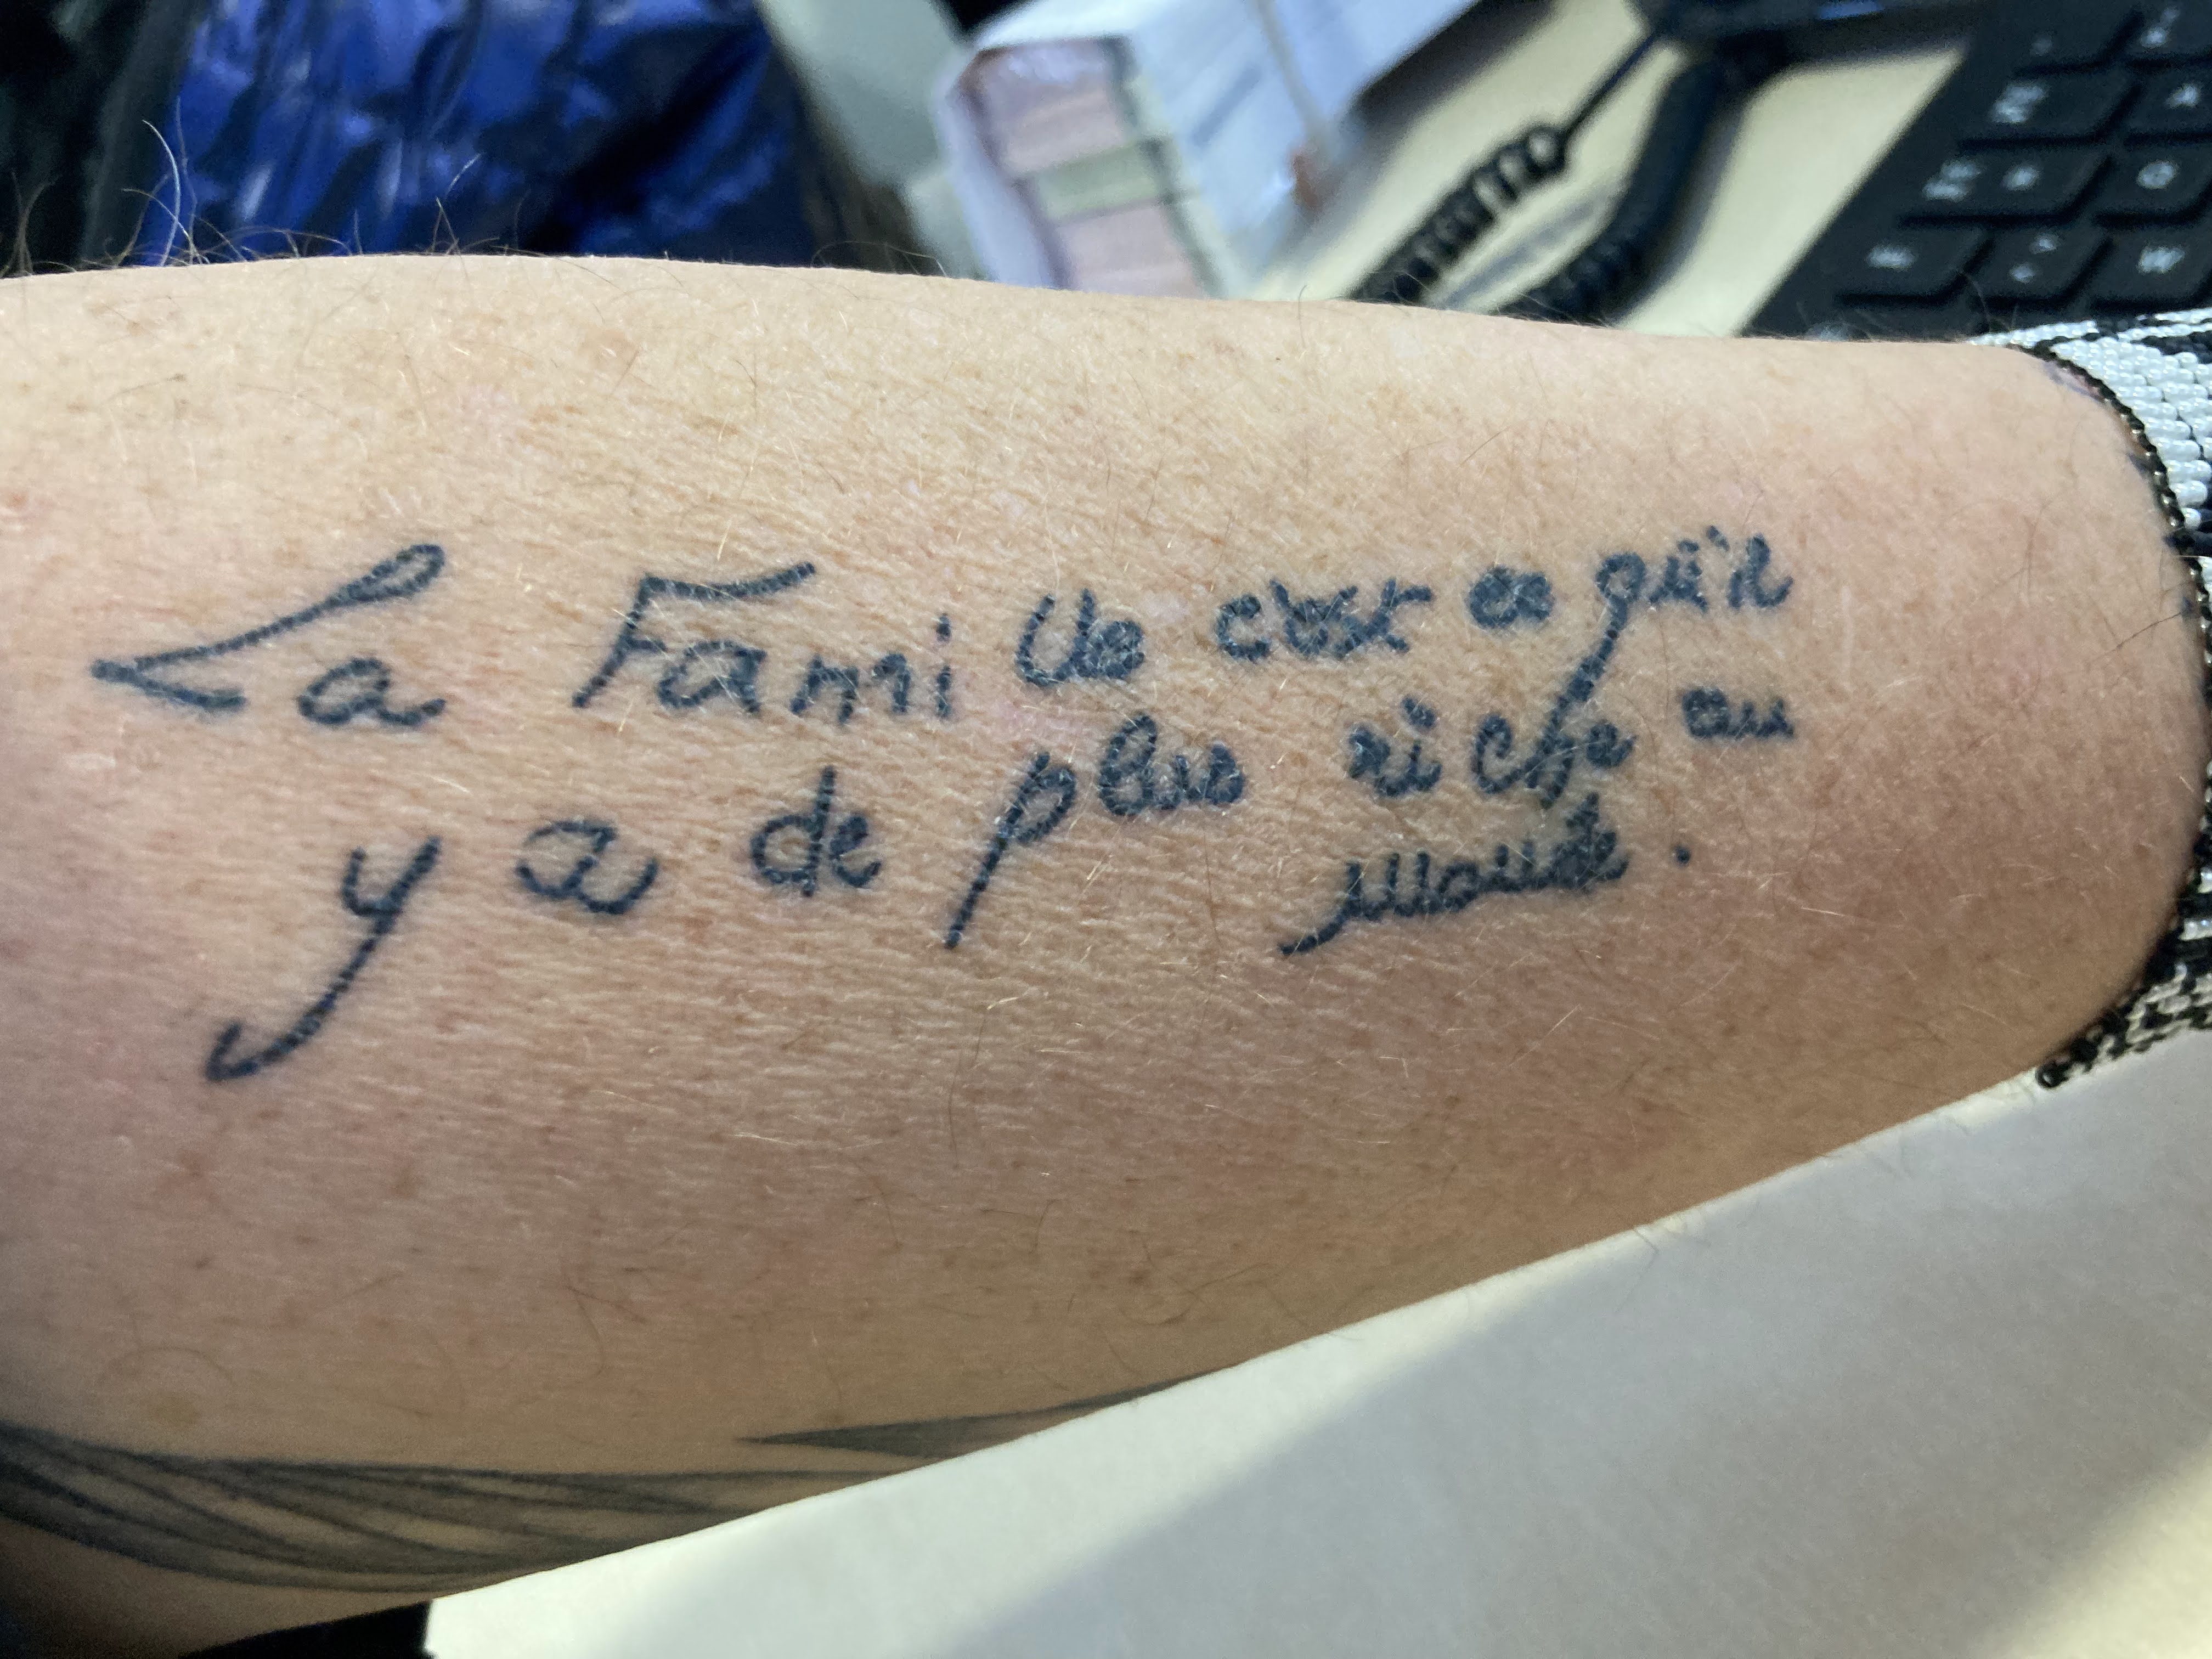 La Famille c'est ce qu'il
y a de plus riche au
monde.